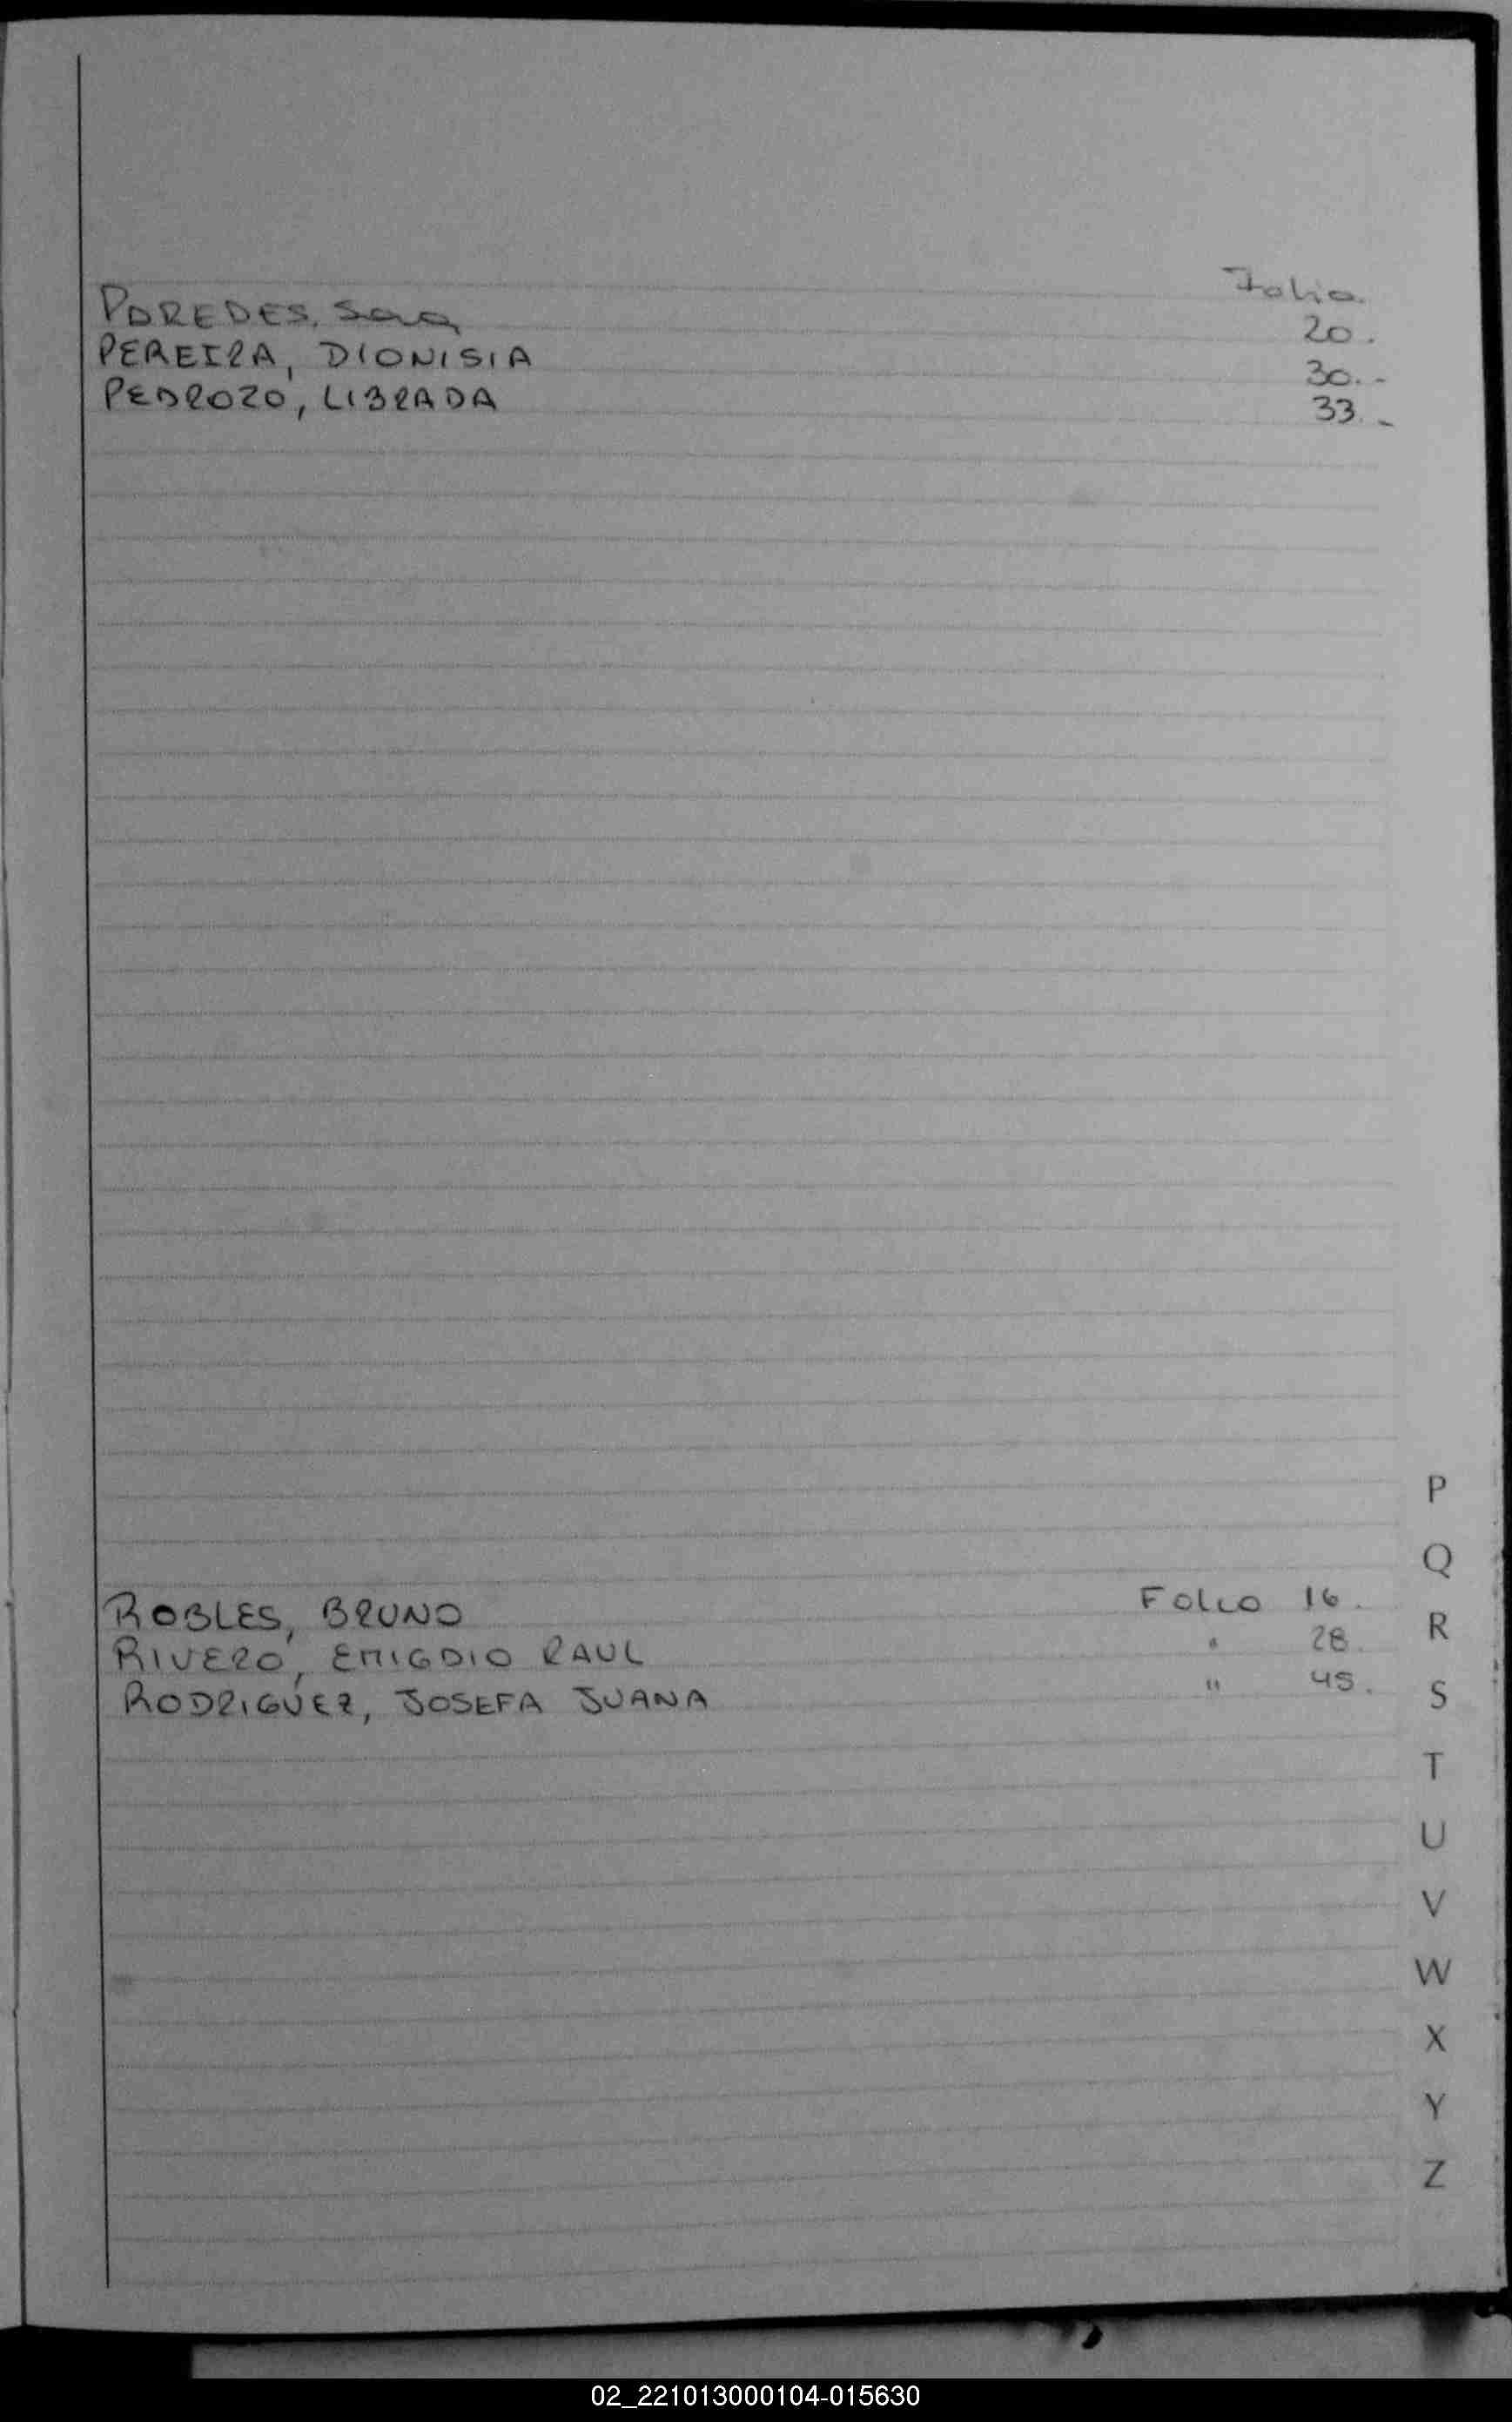 Folio.
PAREDES, Sara 20.
PEREIRA, DIONISIA 30.-
PEDROZO, LIBRADA 33.-
P
Q
ROBLES, BRUNO Folio 16.
R
RIVERO, EMIGDIO RAUL " 28.
RODRIGUEZ, JOSEFA JUANA " 45.
S
T
U
V
W
X
Y
Z
02_221013000104-015630